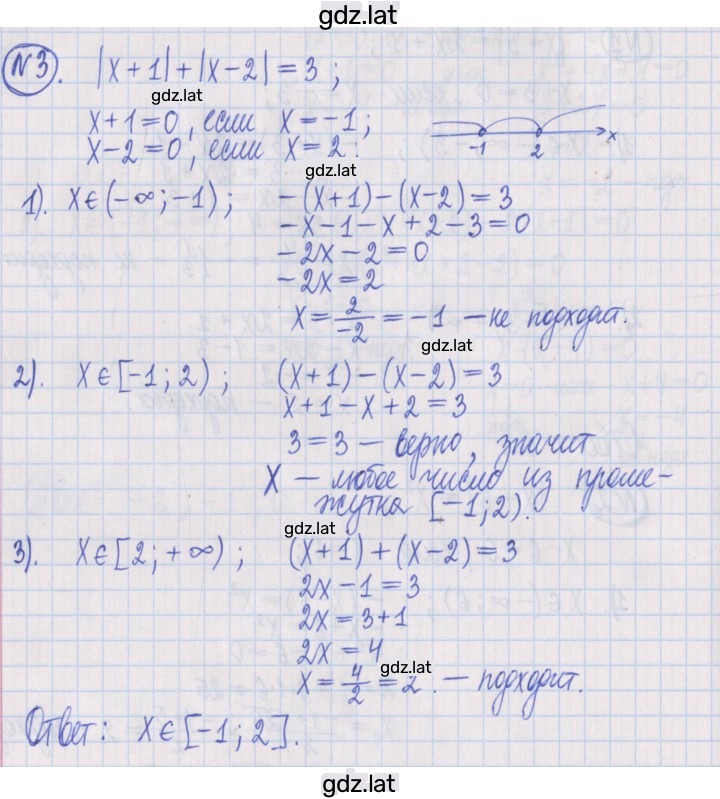 gdz.lat
№3. |x+1|+|x-2|=3;
gdz.lat
x+1=0, если x=-1;
x-2=0, если x=2.
-1 2 x
gdz.lat
1). x∈(-∞;-1); -(x+1)-(x-2)=3
-x-1-x+2-3=0
-2x-2=0
-2x=2
x=2/-2=-1 — не подходит.
gdz.lat
2). x∈[-1;2); (x+1)-(x-2)=3
x+1-x+2=3
3=3 — верно, значит
x — любое число из проме-
жутка [-1;2).
gdz.lat
3). x∈[2;+∞); (x+1)+(x-2)=3
2x-1=3
2x=3+1
2x=4
gdz.lat
x=4/2=2. — подходит.
Ответ: x∈[-1;2].
gdz.lat